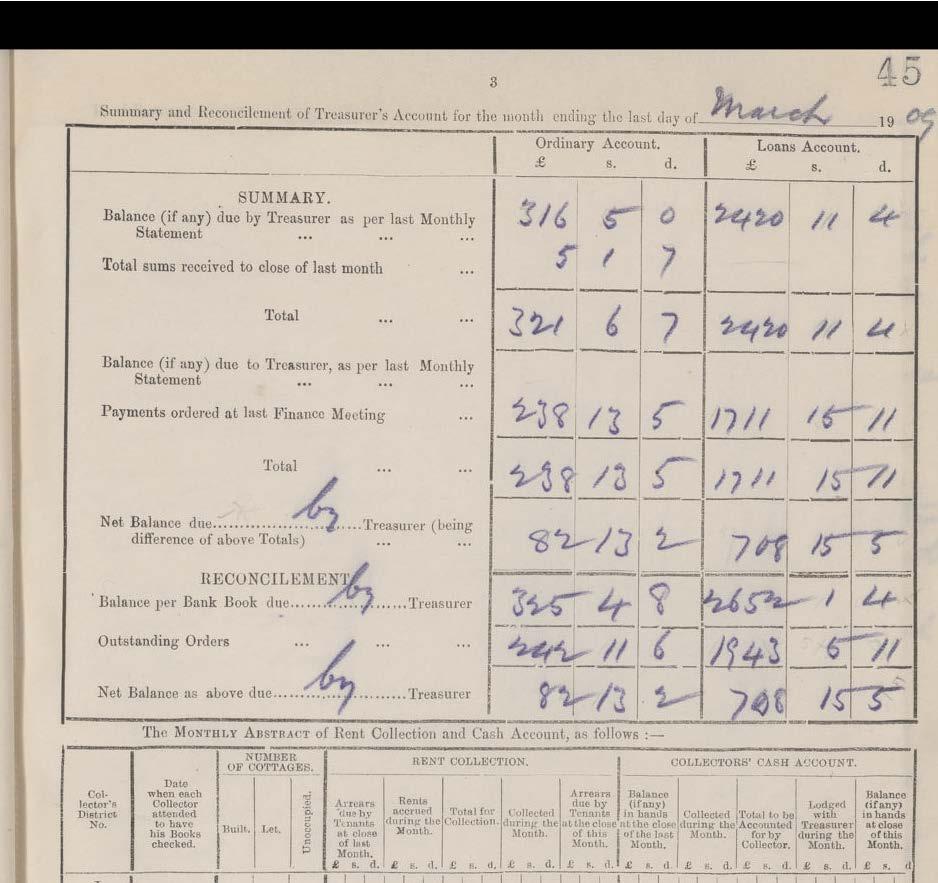 45
3
Summary and Reconcilement of Treasurer's Account for the month ending the last day of March 1909
Ordinary Account. Loans Account.
£ s. d. £ s. d.
SUMMARY.
Balance (if any) due by Treasurer as per last Monthly
Statement ... ... ... 316 5 0 2420 11 4
Total sums received to close of last month ... 5 1 7
Total ... ... 321 6 7 2420 11 4
Balance (if any) due to Treasurer, as per last Monthly
Statement ... ... ...
Payments ordered at last Finance Meeting ... 238 13 5 1711 15 11
Total ... ... 238 13 5 1711 15 11
Net Balance due by Treasurer (being
difference of above Totals) ... ... 82 13 2 708 15 5
RECONCILEMENT
Balance per Bank Book due by Treasurer 325 4 8 2652 1 4
Outstanding Orders ... ... ... 242 11 6 1943 5 11
Net Balance as above due by Treasurer 82 13 2 708 15 5
The MONTHLY ABSTRACT of Rent Collection and Cash Account, as follows :—
NUMBER OF COTTAGES. RENT COLLECTION. COLLECTORS' CASH ACCOUNT.
Col-
lector's
District
No.
Date
when each
Collector
attended
to have
his Books
checked.
Built.
Let.
Unoccupied.
Arrears
due by
Tenants
at close
of last
Month.
Rents
accrued
during the
Month.
Total for
Collection.
Collected
during the
Month.
Arrears
due by
Tenants
at the close
of this
Month.
Balance
(if any)
in hands
at the close
of the last
Month.
Collected
during the
Month.
Total to be
Accounted
for by
Collector.
Lodged
with
Treasurer
during the
Month.
Balance
(if any)
in hands
at close
of this
Month.
£ s. d. £ s. d. £ s. d. £ s. d. £ s. d. £ s. d. £ s. d. £ s. d. £ s. d. £ s. d